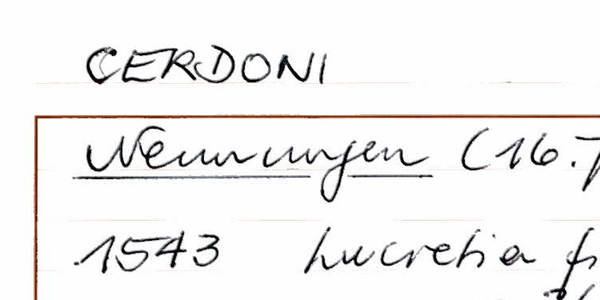 CERDONI
Nennungen (16.
1543 Lucretia